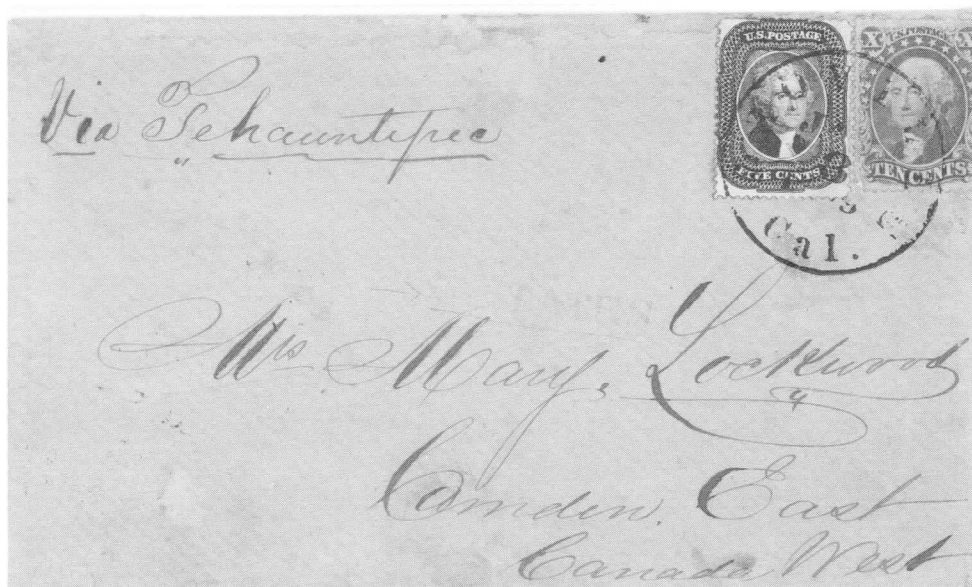 Via Tehauntepec
U.S. POSTAGE
FIVE CENTS
X U.S. POSTAGE X
TEN CENTS
Cal.
Mrs Mary. Lockwood
Camden. East
Canada West